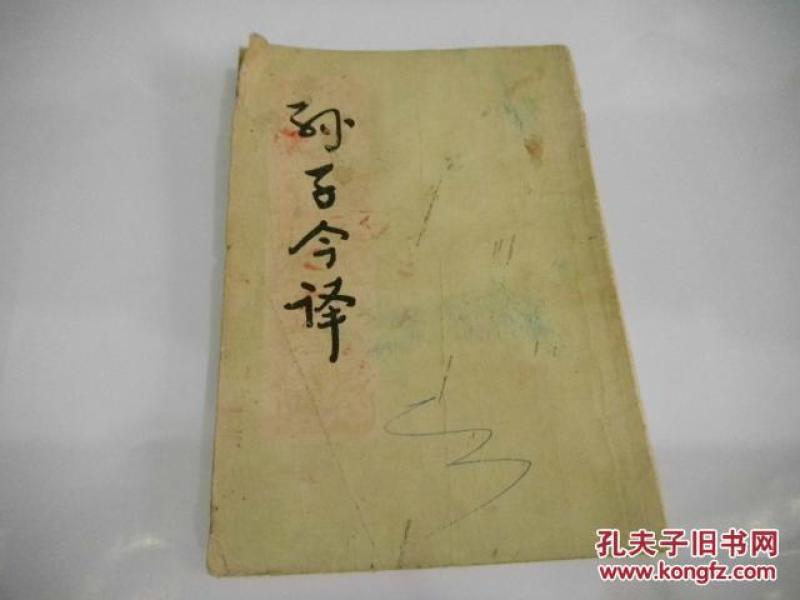 孙子今译
孔夫子旧书网
www.kongfz.com